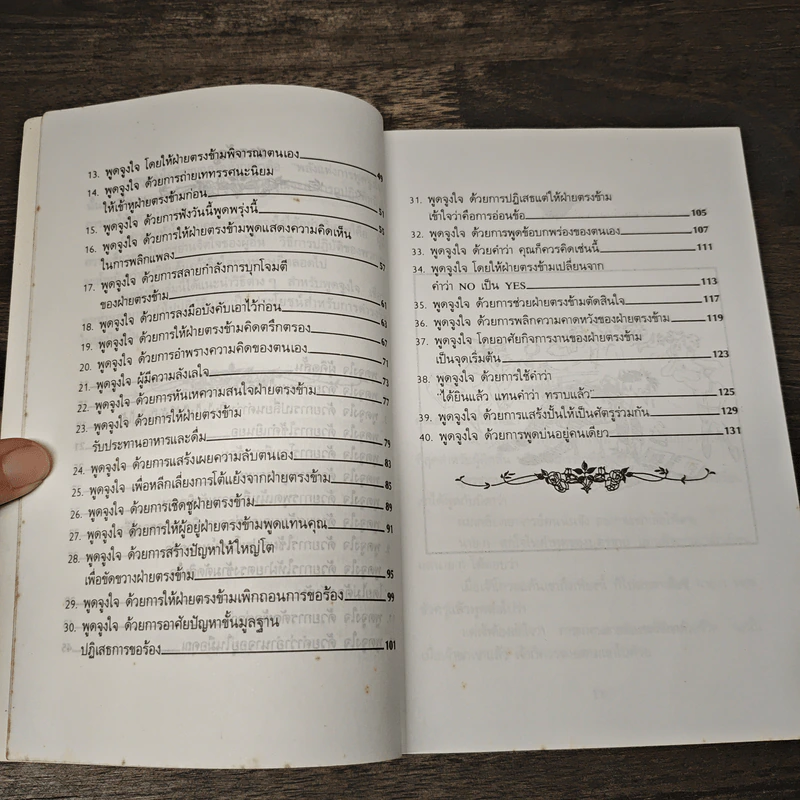 13. พูดจูงใจ โดยให้ฝ่ายตรงข้ามพิจารณาตนเอง 49
14. พูดจูงใจ ด้วยการถ่ายเททรรศนะนิยม
ให้เข้าหูฝ่ายตรงข้ามก่อน 51
15. พูดจูงใจ ด้วยการฟังวันนี้พูดพรุ่งนี้ 55
16. พูดจูงใจ ด้วยการให้ฝ่ายตรงข้ามพูดแสดงความคิดเห็น
ในการพลิกแพลง 57
17. พูดจูงใจ ด้วยการสลายกำลังการบุกโจมตี
ของฝ่ายตรงข้าม 61
18. พูดจูงใจ ด้วยการลงมือบังคับเอาไว้ก่อน 63
19. พูดจูงใจ ด้วยการให้ฝ่ายตรงข้ามคิดตรึกตรอง 67
20. พูดจูงใจ ด้วยการอำพรางความคิดของตนเอง 71
21. พูดจูงใจ ผู้มีความลังเลใจ 73
22. พูดจูงใจ ด้วยการหันเหความสนใจฝ่ายตรงข้าม 77
23. พูดจูงใจ ด้วยการให้ฝ่ายตรงข้าม
รับประทานอาหารและดื่ม 79
24. พูดจูงใจ ด้วยการแสร้งเผยความลับตนเอง 83
25. พูดจูงใจ เพื่อหลีกเลี่ยงการโต้แย้งจากฝ่ายตรงข้าม 85
26. พูดจูงใจ ด้วยการเชิดชูฝ่ายตรงข้าม 89
27. พูดจูงใจ ด้วยการให้ผู้อยู่ฝ่ายตรงข้ามพูดแทนคุณ 91
28. พูดจูงใจ ด้วยการสร้างปัญหาให้ใหญ่โต
เพื่อขัดขวางฝ่ายตรงข้าม 95
29. พูดจูงใจ ด้วยการให้ฝ่ายตรงข้ามเพิกถอนการขอร้อง 99
30. พูดจูงใจ ด้วยการอาศัยปัญหาขั้นมูลฐาน
ปฏิเสธการขอร้อง 101
31. พูดจูงใจ ด้วยการปฏิเสธแต่ให้ฝ่ายตรงข้าม
เข้าใจว่าคือการอ่อนข้อ 105
32. พูดจูงใจ ด้วยการพูดข้อบกพร่องของตนเอง 107
33. พูดจูงใจ ด้วยคำว่า คุณก็ควรคิดเช่นนี้ 111
34. พูดจูงใจ โดยให้ฝ่ายตรงข้ามเปลี่ยนจาก
คำว่า NO เป็น YES 113
35. พูดจูงใจ ด้วยการช่วยฝ่ายตรงข้ามตัดสินใจ 117
36. พูดจูงใจ ด้วยการพลิกความคาดหวังของฝ่ายตรงข้าม 119
37. พูดจูงใจ โดยอาศัยกิจการงานของฝ่ายตรงข้าม
เป็นจุดเริ่มต้น 123
38. พูดจูงใจ ด้วยการใช้คำว่า
"ได้ยินแล้ว แทนคำว่า ทราบแล้ว" 125
39. พูดจูงใจ ด้วยการแสร้งปั้นให้เป็นศัตรูร่วมกัน 129
40. พูดจูงใจ ด้วยการพูดบ่นอยู่คนเดียว 131